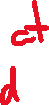 ct
d